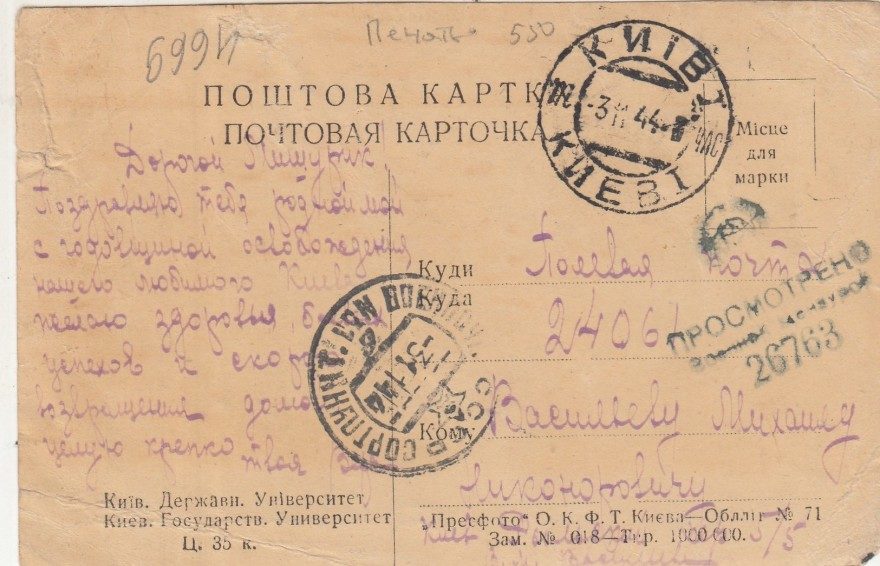 Печать 550
ПОШТОВА КАРТК
ПОЧТОВАЯ КАРТОЧКА
КИЇВ
КИЕВ
Місце
для
марки
Дорогой Мишурик
Поздравляю тебя родной мой
с годовщиной освобождения
нашего любимого Киева
желаю здоровья,
успехов и
возвращения домой
целую крепко твоя
Куди
Куда
Полевая почта
24061
ПРОСМОТРЕНО
Военной Цензурой
26763
СССР
Кому
Васильеву Михаилу
Никоноровичу
Київ. Держави. Університет
Киев. Государств. Университет
Ц. 35 к.
„Пресфото" О. К. Ф. Т. Києва— Обллiт № 71
Зам. № 018—Тир. 1000000.